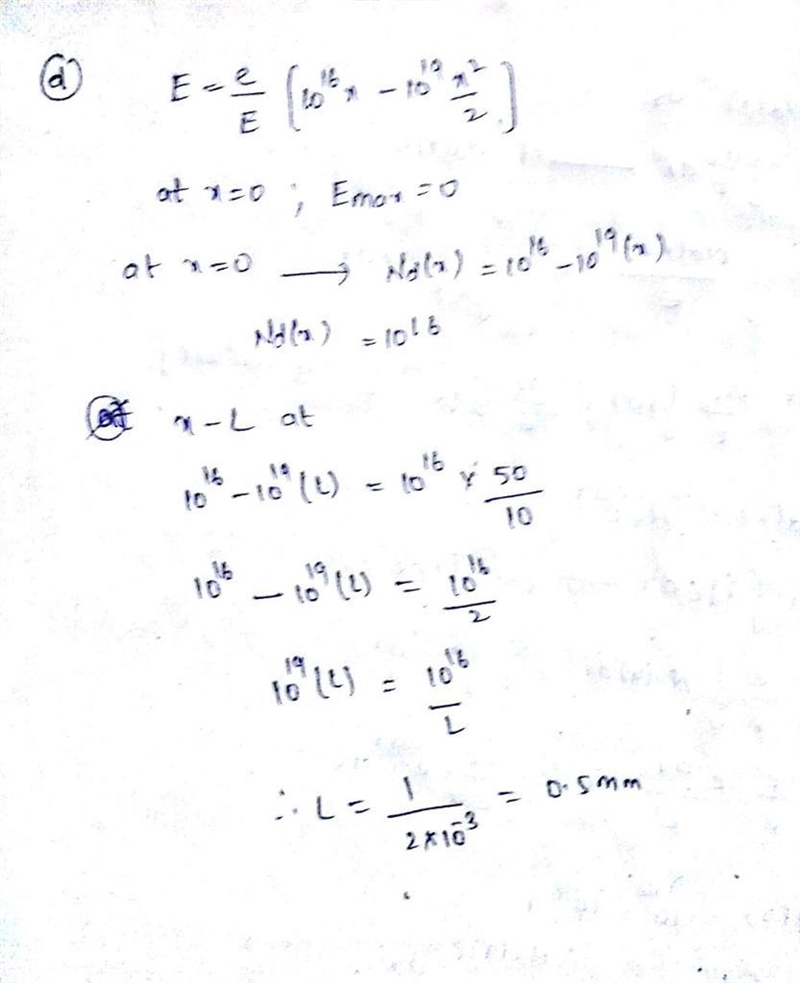 (d) E = e/E [10^16 x - 10^19 x^2/2]
at x=0 ; Emax = 0
at x=0 → Nd(x) = 10^16 - 10^19 (x)
Nd(x) = 10^16
x - L at
10^16 - 10^19 (L) = 10^16 x 50/10
10^16 - 10^19 (L) = 10^16/2
10^19 (L) = 10^16/L
∴ L = 1/2×10^-3 = 0.5mm